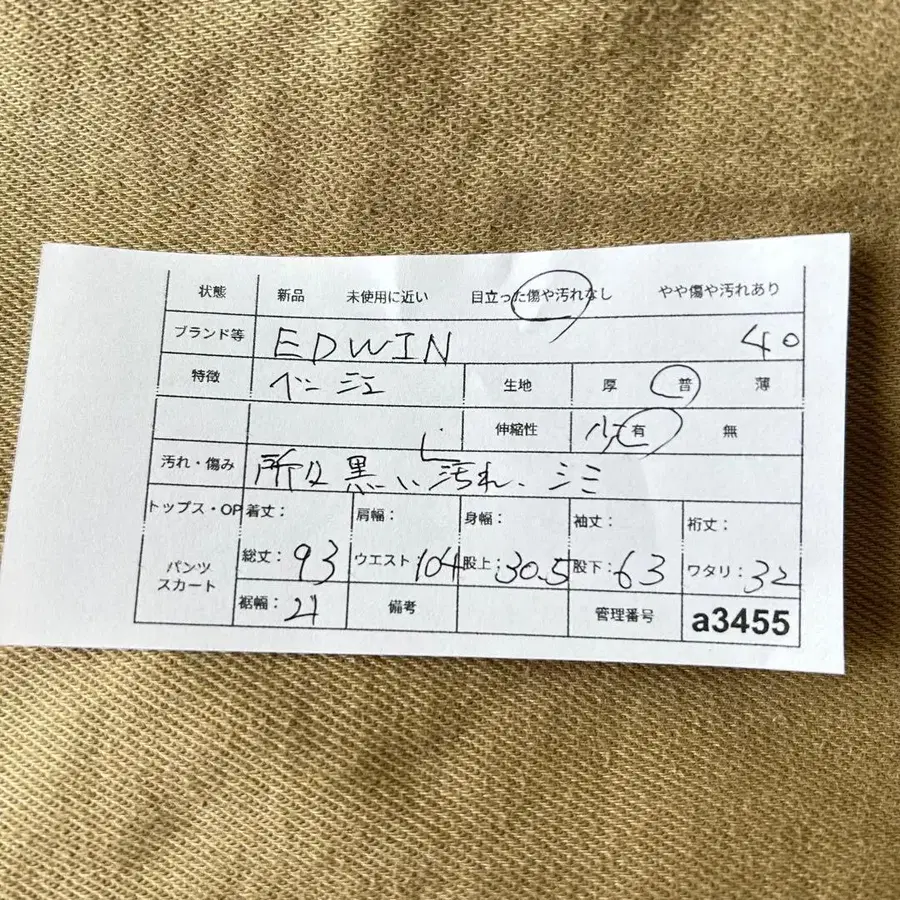 状態 新品 未使用に近い 目立った傷や汚れなし やや傷や汚れあり
ブランド等 EDWIN 40
特徴 ベージュ 生地 厚 普 薄
伸縮性 有 無
汚れ・傷み 所々黒い汚れ、シミ
トップス・OP 着丈： 肩幅： 身幅： 袖丈： 裄丈：
パンツ スカート 総丈：93 ウエスト：104 股上：30.5 股下：63 ワタリ：32
裾幅：21 備考 管理番号 a3455